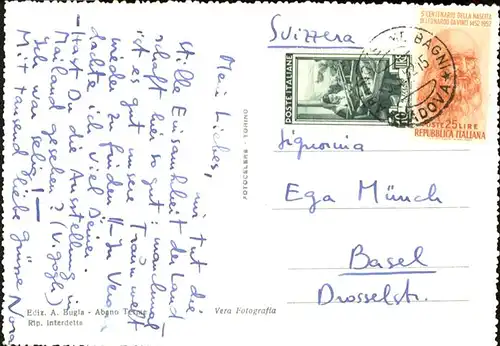 Mein Liebes, mir tut die
stille Einsamkeit der Land-
schaft hier so gut: manchmal
ist es gut unsere Traumwelt
wieder zu finden!! – In Verona
dachte ich viel Deiner.
– Hast Du die Ausstellung in
Mailand gesehen? (V. Gogh)
Ich war selig! –
Mit tausend liebe Grüsse Nora
Ediz. A. Bugla - Abano Terme
Rip. interdette
Vera Fotografia
FOTOCELERE - TORINO
Svizzera
Signorina
Ega Münch
Basel
Drosselstr.
POSTE ITALIANE
5° CENTENARIO DELLA NASCITA
DI LEONARDO DA VINCI 1452-1952
POSTE 25 LIRE
REPUBBLICA ITALIANA
BAGNI
PADOVA